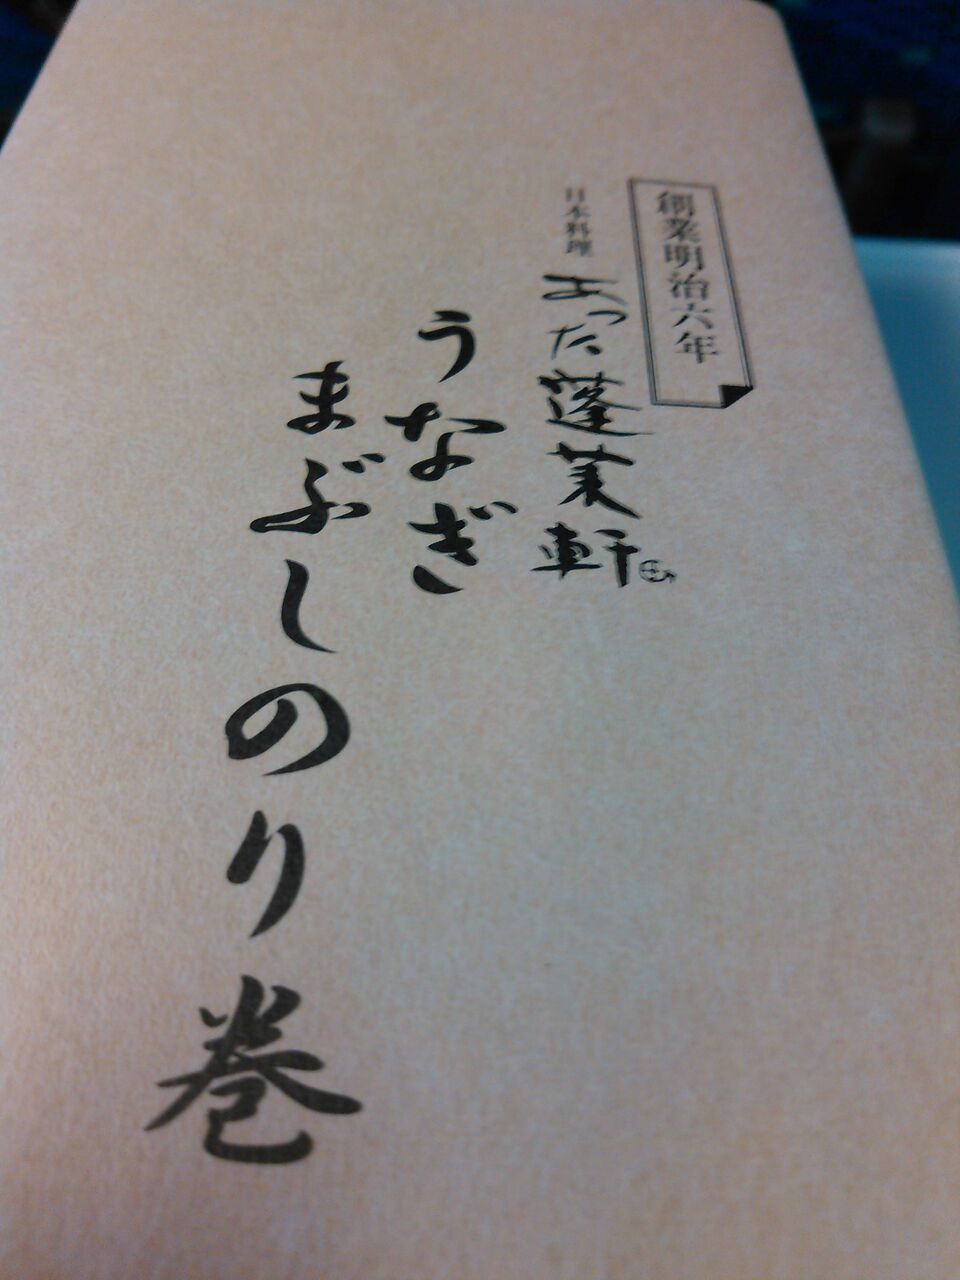 創業明治六年
日本料理 あつた蓬莱軒
うなぎ
まぶしのり巻